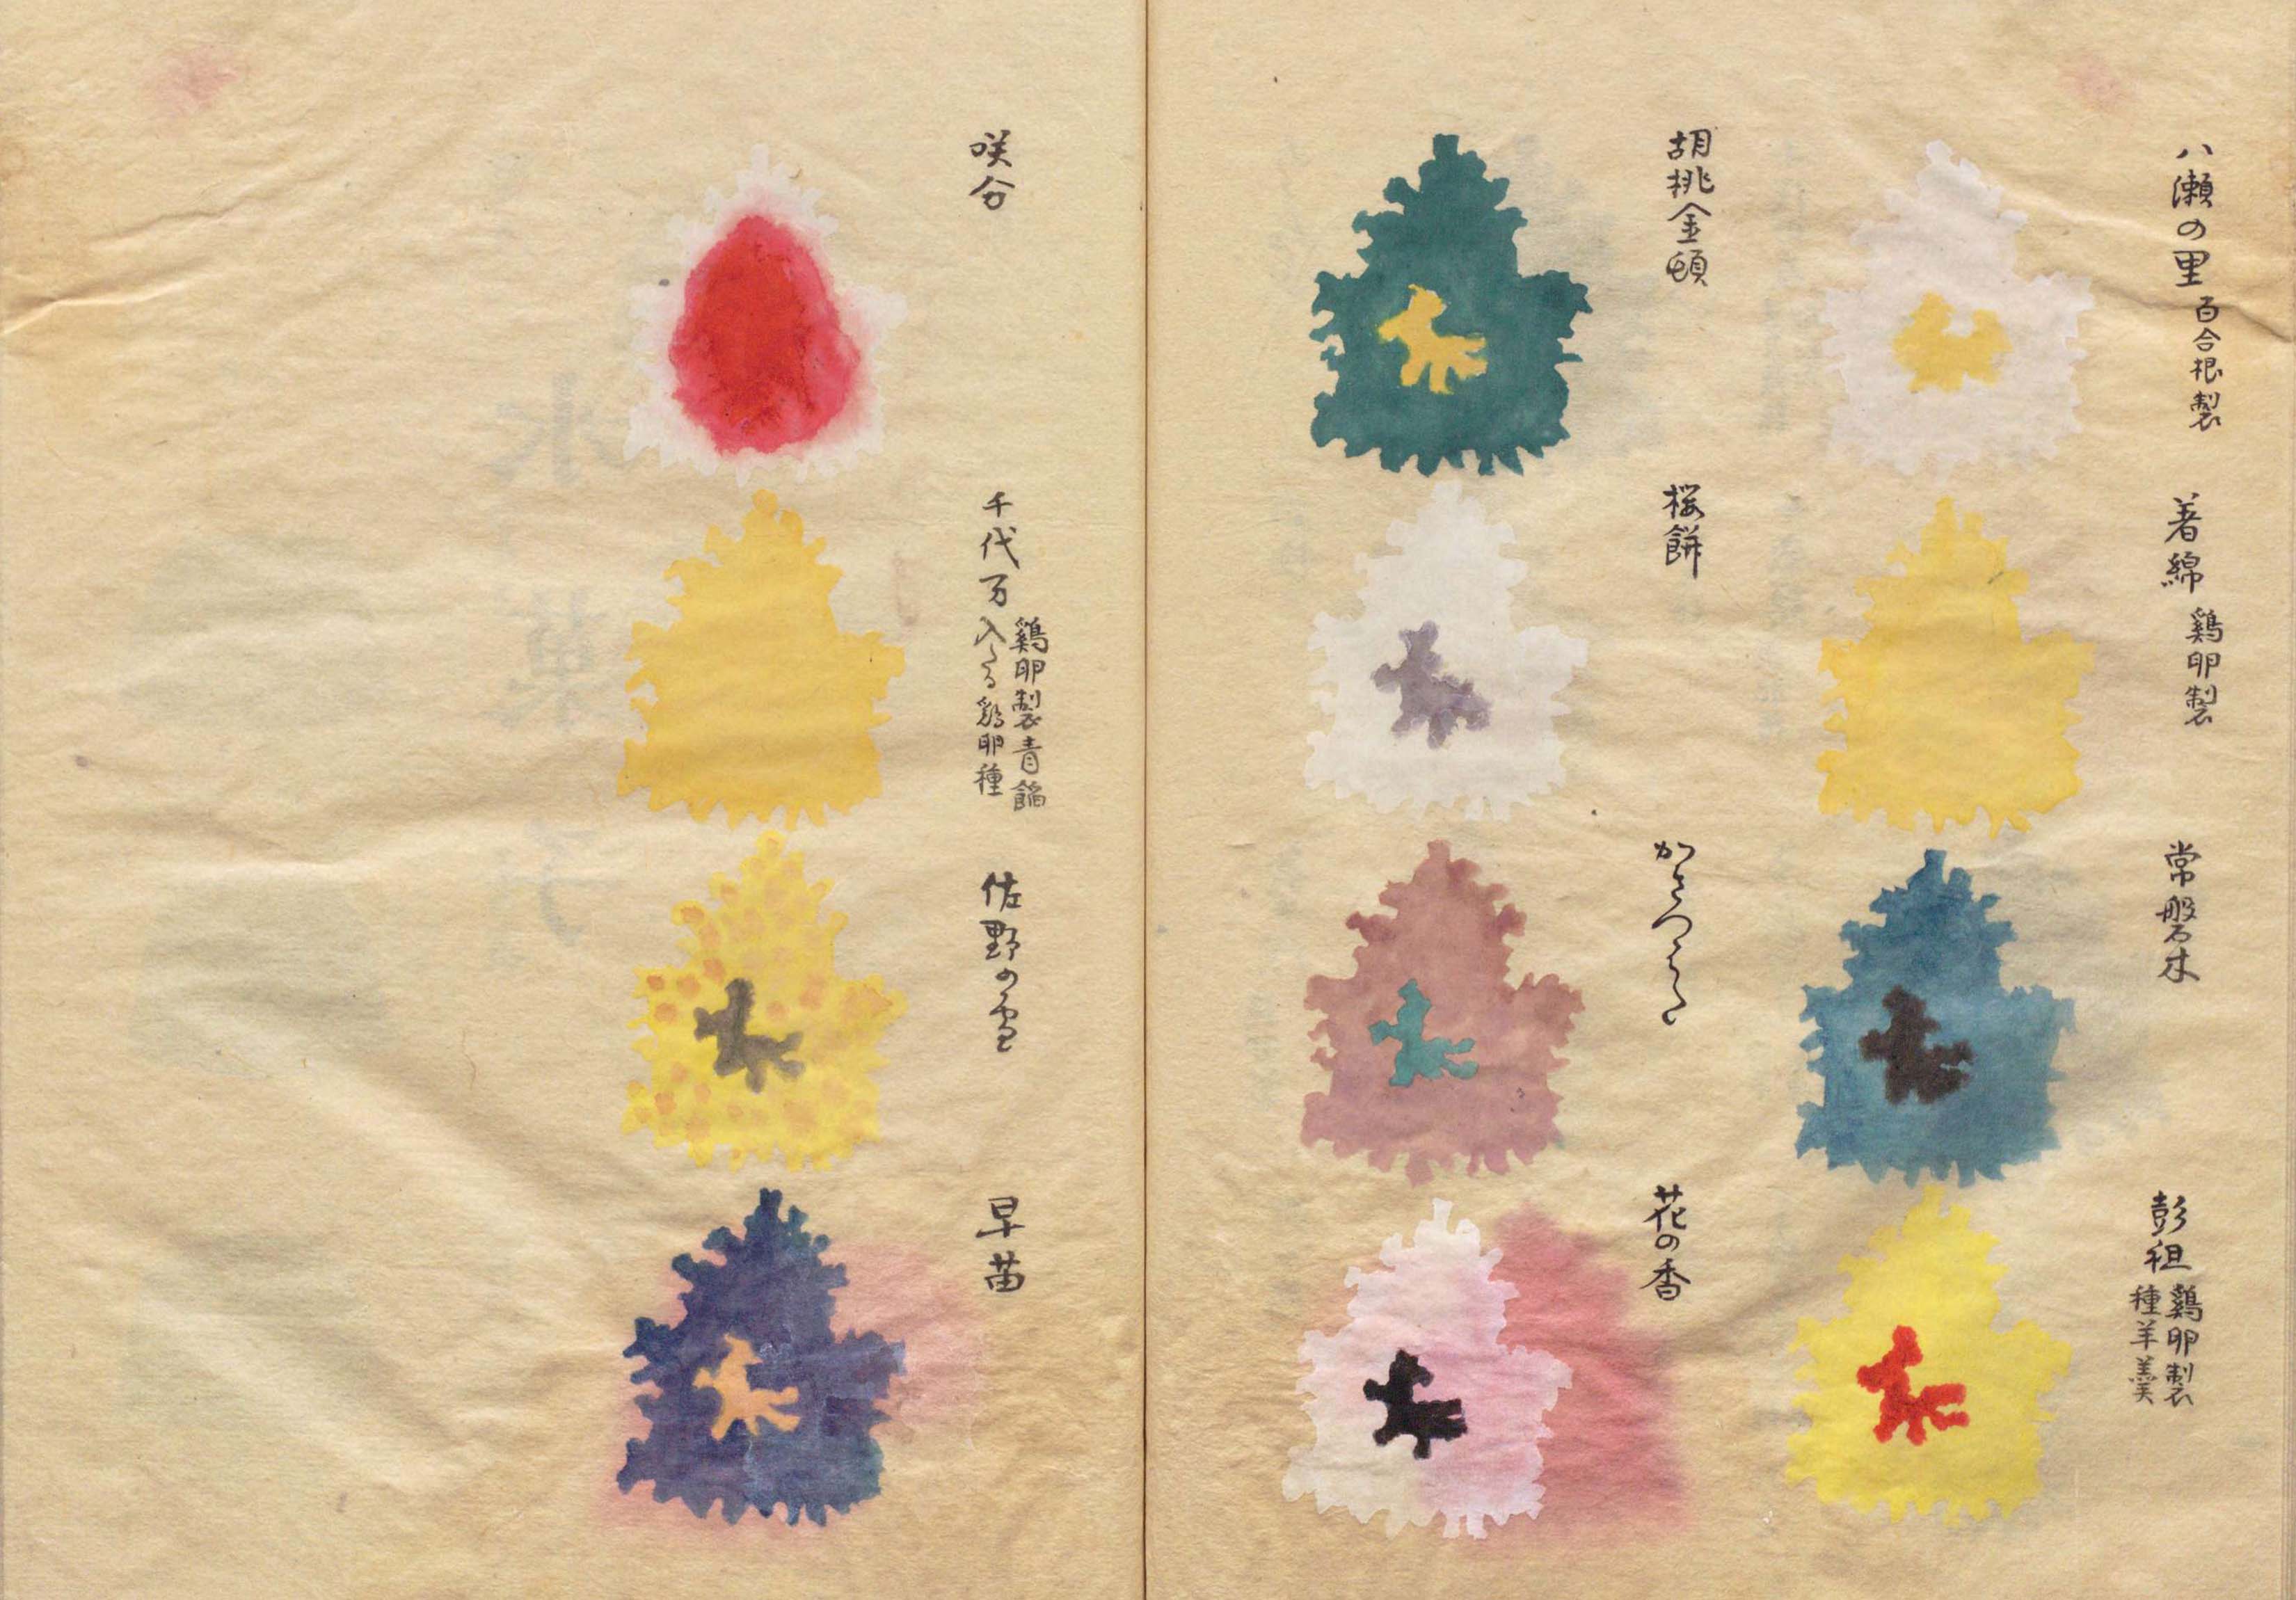 八瀬の里 百合根製
着綿 鶏卵製
常磐木
彭祖 鶏卵製
種羊羹
胡桃金頓
桜餅
花の香
咲分
千代万 鶏卵製青餡
入たる鶏卵種
佐野の雪
早苗
氷菓子